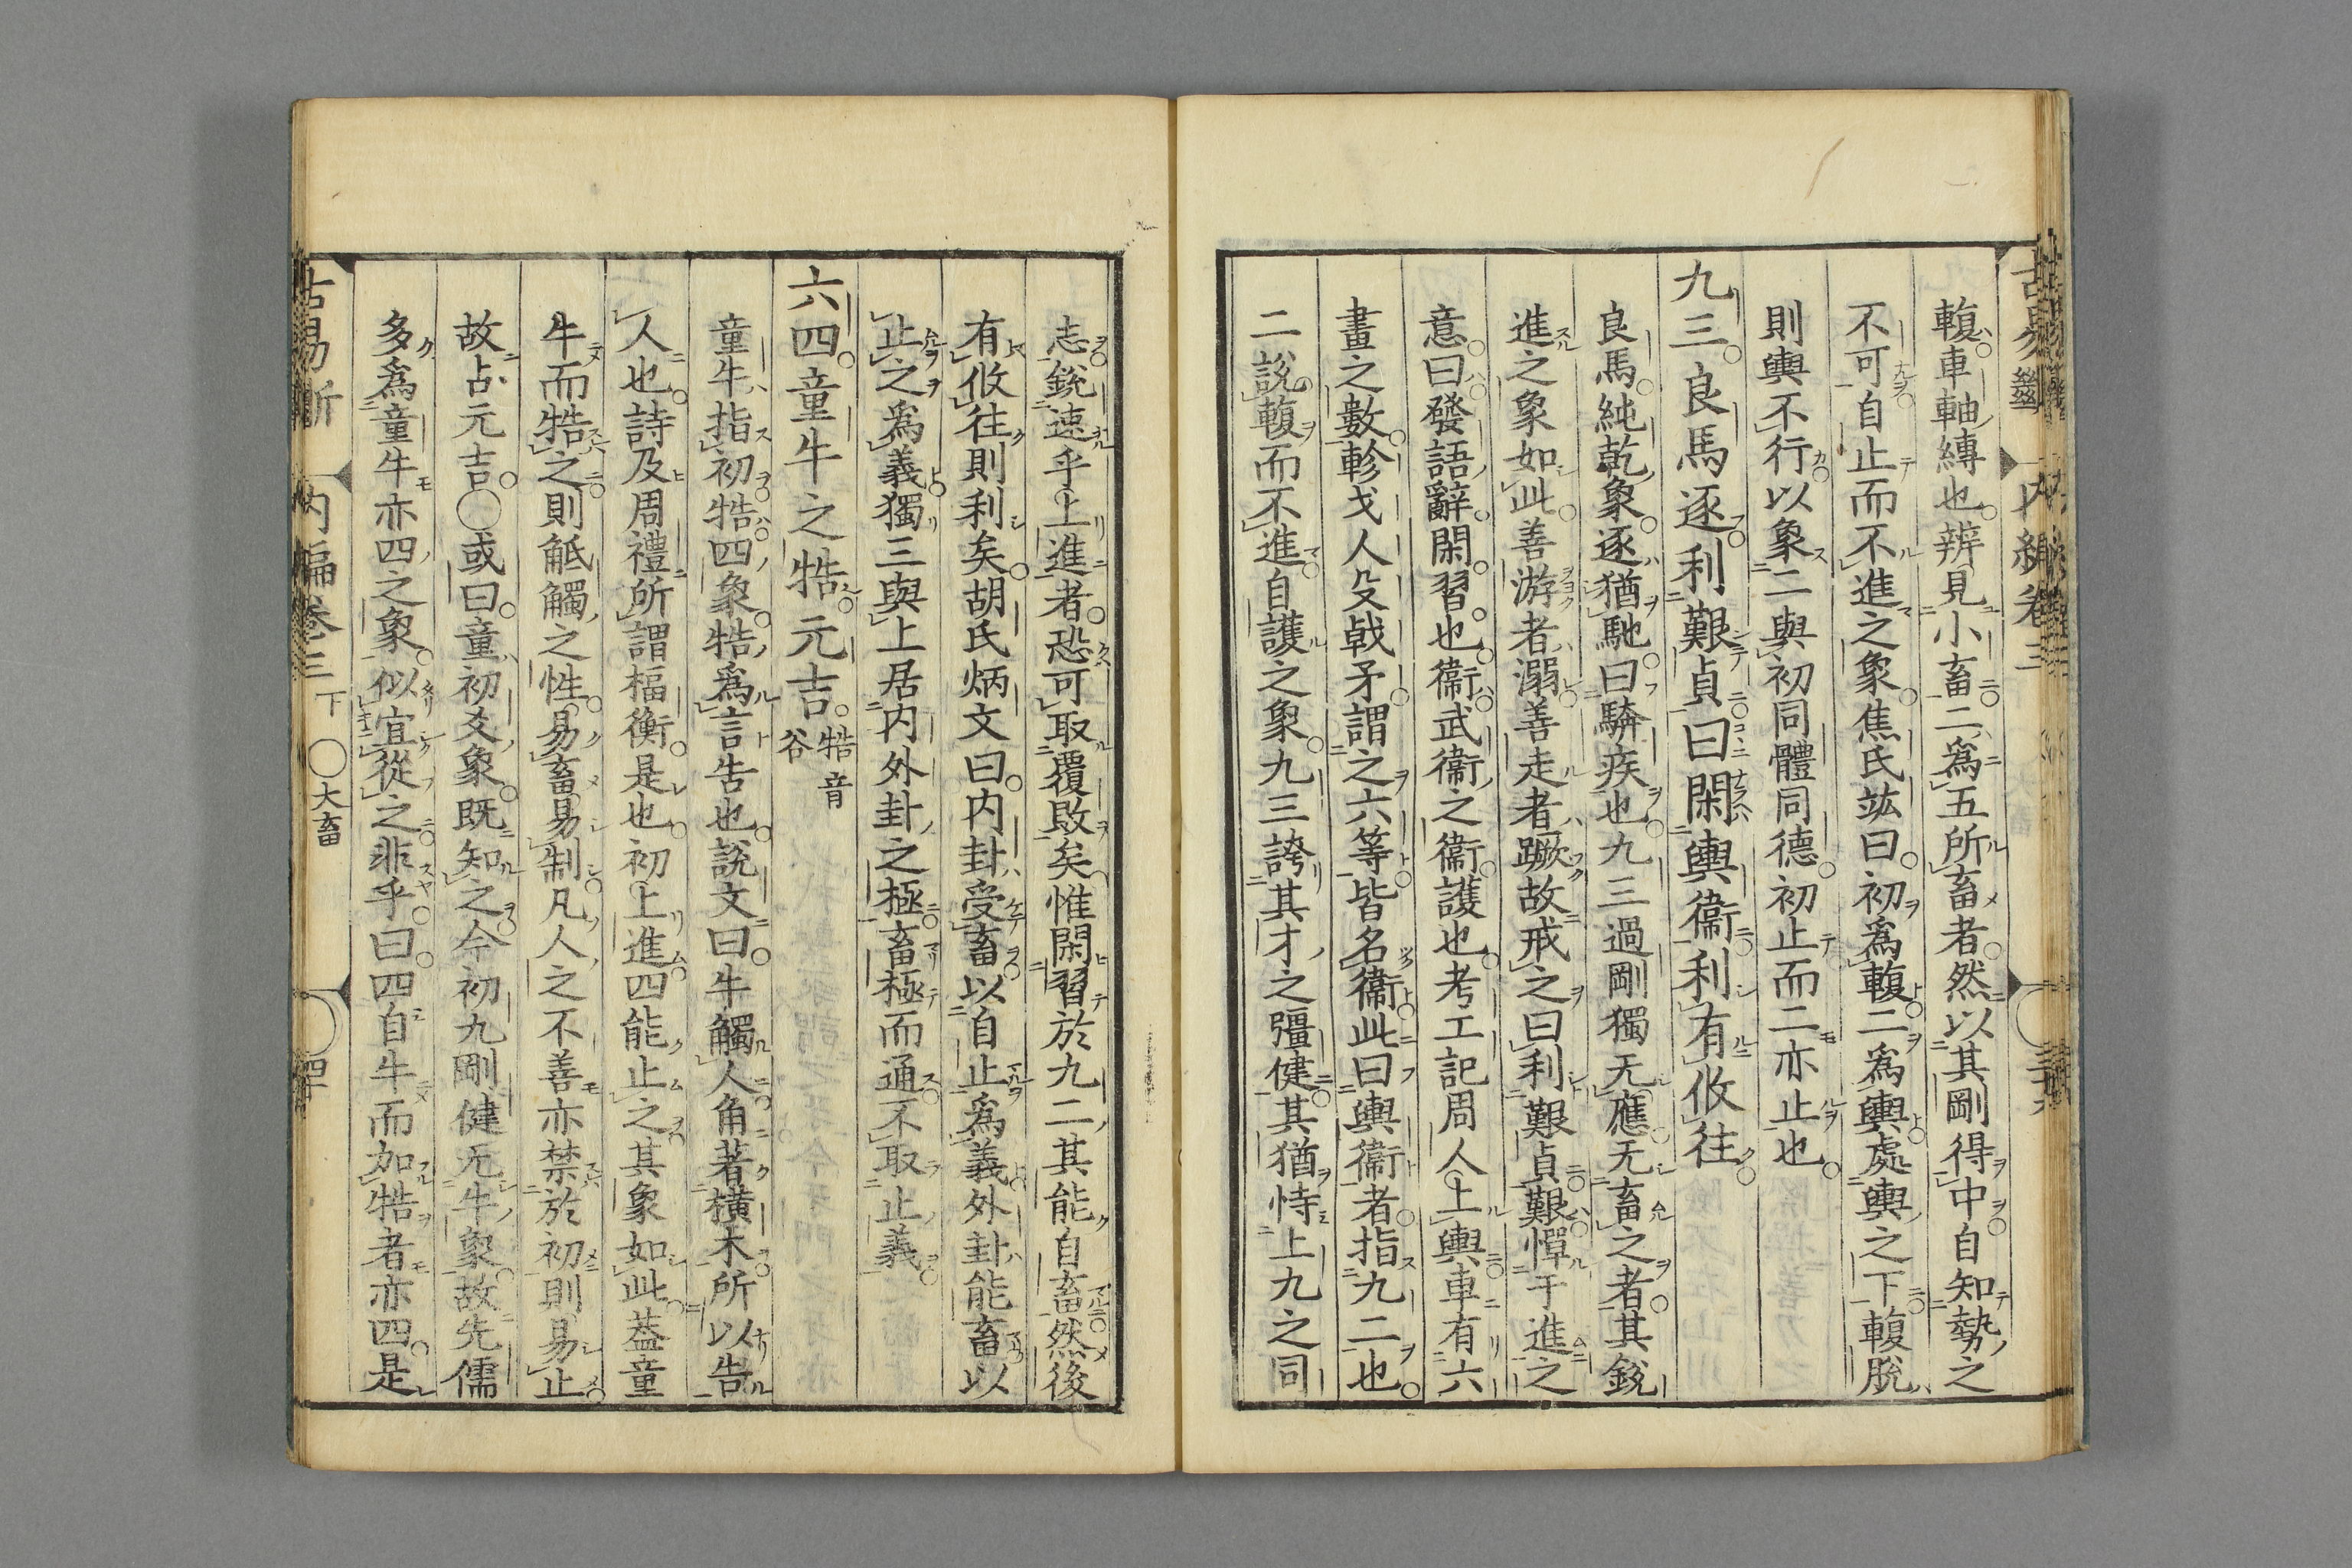 輹車軸縳也辨見小畜二爲五所畜者然以其剛得中自知勢之
不可自止而不進之象焦氏竑曰初爲輹二爲輿處輿之下輹脫
則輿不行以象二與初同體同德初止而二亦止也
九三良馬逐利艱貞曰閑輿衞利有攸往
良馬純乾象逐猶馳曰驕疾也九三過剛獨无應无畜之者其銳
進之象如此善游者溺善走者蹶故戒之曰利艱貞艱憚于進之
意曰發語辭閑習也衞武衞之衞護也考工記周人上輿車有六
畫之數軫戈人殳戟矛謂之六等皆名衞此曰輿衞者指九二也
二說輹而不進自護之象九三誇其才之彊健其猶恃上九之同
志銳速乎上進者恐可取覆敗矣惟閑習於九二其能自畜然後
有攸往則利矣胡氏炳文曰内卦受畜以自止爲義外卦能畜以
止之爲義獨三與上居内外卦之極畜極而通不取止義
六四童牛之牿元吉牿音
谷
童牛指初牿四象牿爲言告也說文曰牛觸人角著橫木所以告
人也詩及周禮所謂楅衡是也初上進四能止之其象如此葢童
牛而牿之則觝觸之性易畜易制凡人之不善亦禁於初則易止
故占元吉○或曰童初爻象既知之今初九剛健无牛象故先儒
多爲童牛亦四之象似宜從之非乎曰四自牛而加牿者亦四是
古易斷 内編卷三下 ○大畜